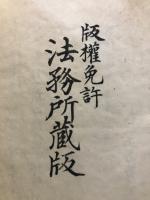 版權免許
法務所藏版